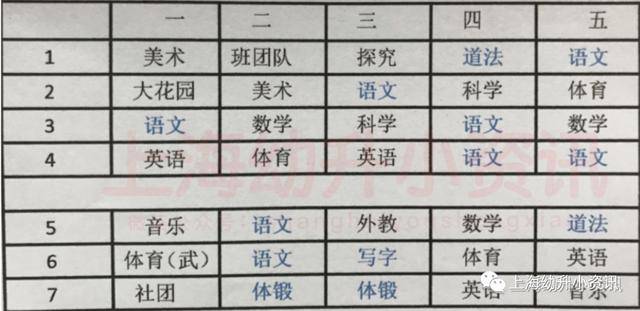 一 二 三 四 五
1 美术 班团队 探究 道法 语文
2 大花园 美术 语文 科学 体育
3 语文 数学 科学 语文 数学
4 英语 体育 英语 语文 语文
上海幼升小资讯
5 音乐 语文 外教 数学 道法
6 体育(武) 语文 写字 体育 英语
7 社团 体锻 体锻 英语 音乐
上海幼升小资讯